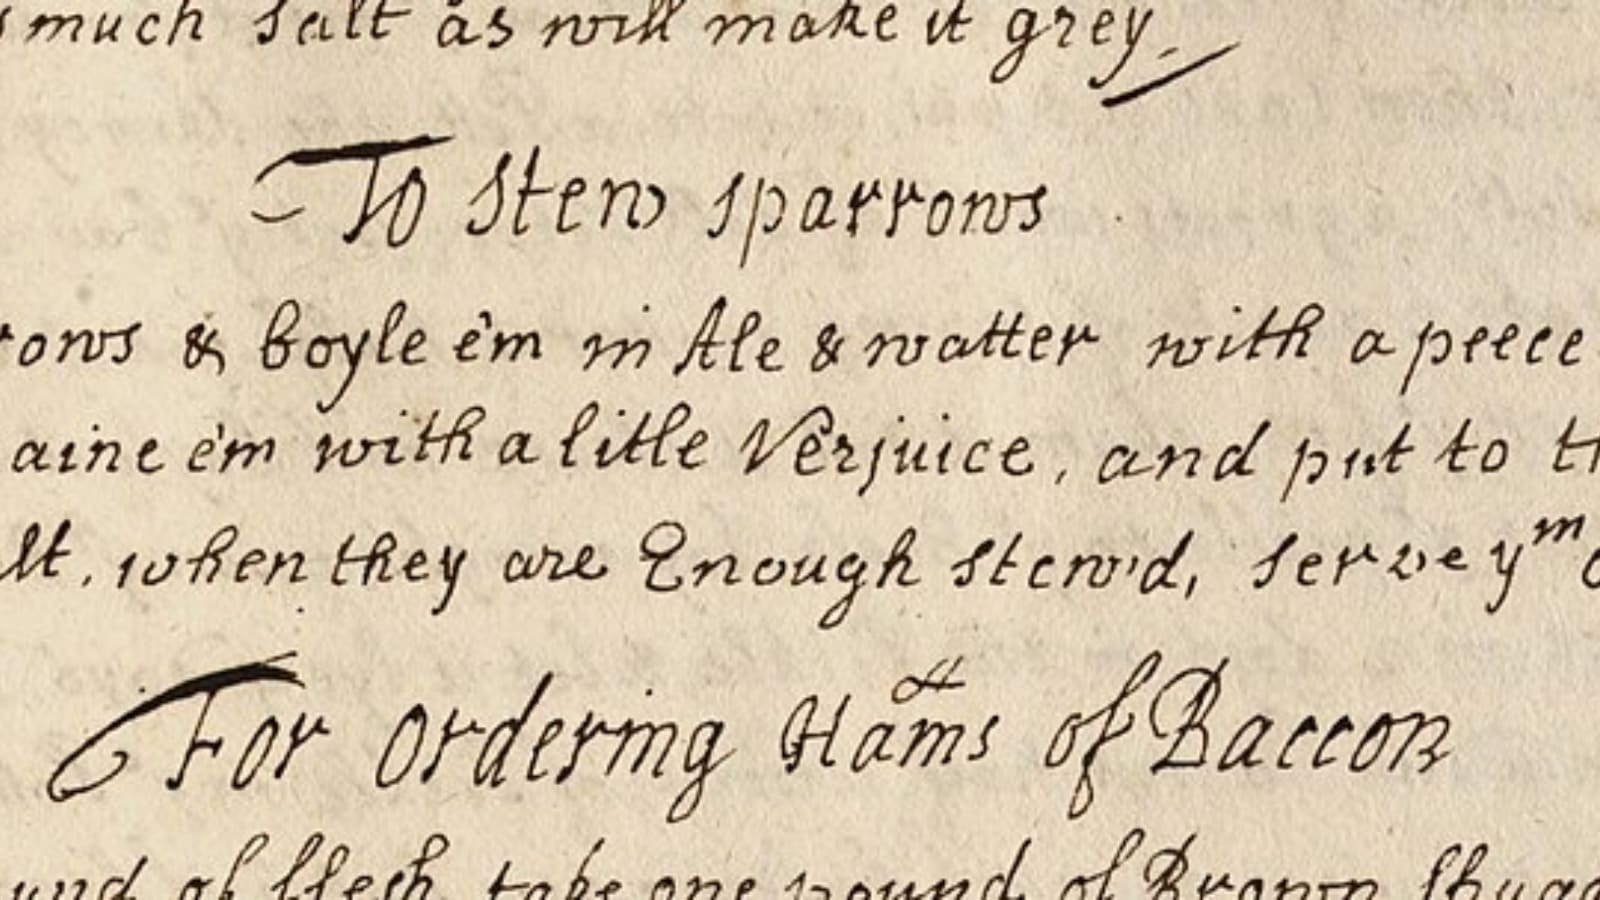 much salt as will make it grey.
To Stew sparrows
rows & boyle e'm in Ale & watter with a peece
aine e'm with a litle Verjuice, and put to
lt, when they are Enough stew'd, serve yᵐ
For Ordering Hams of Baccon
und of flesh take one pound of Brown Shuga